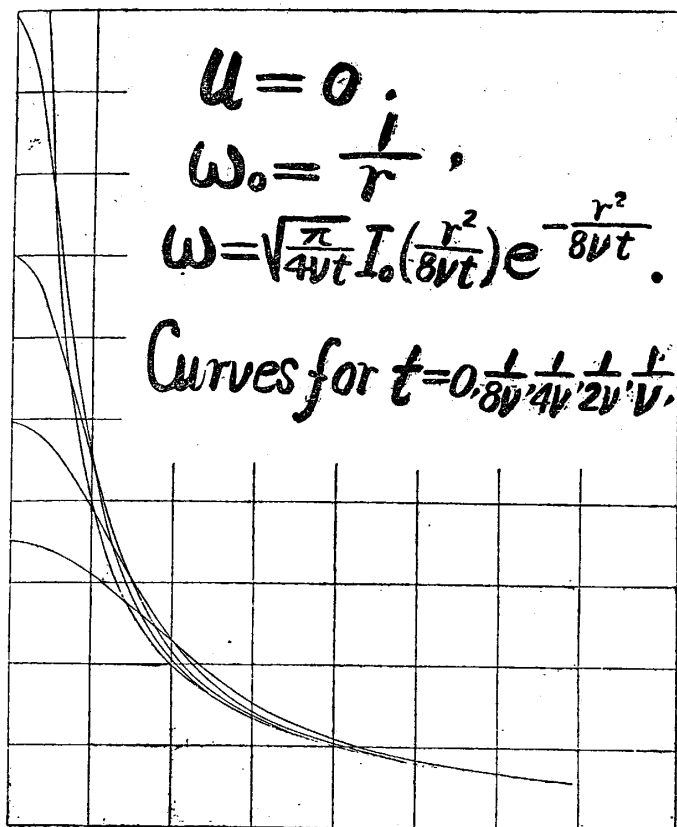 u = 0.
ω₀ = 1/r,
ω = √(π/4νt) I₀(r²/8νt) e^(-r²/8νt).
Curves for t = 0, 1/8ν, 1/4ν, 1/2ν, 1/ν.